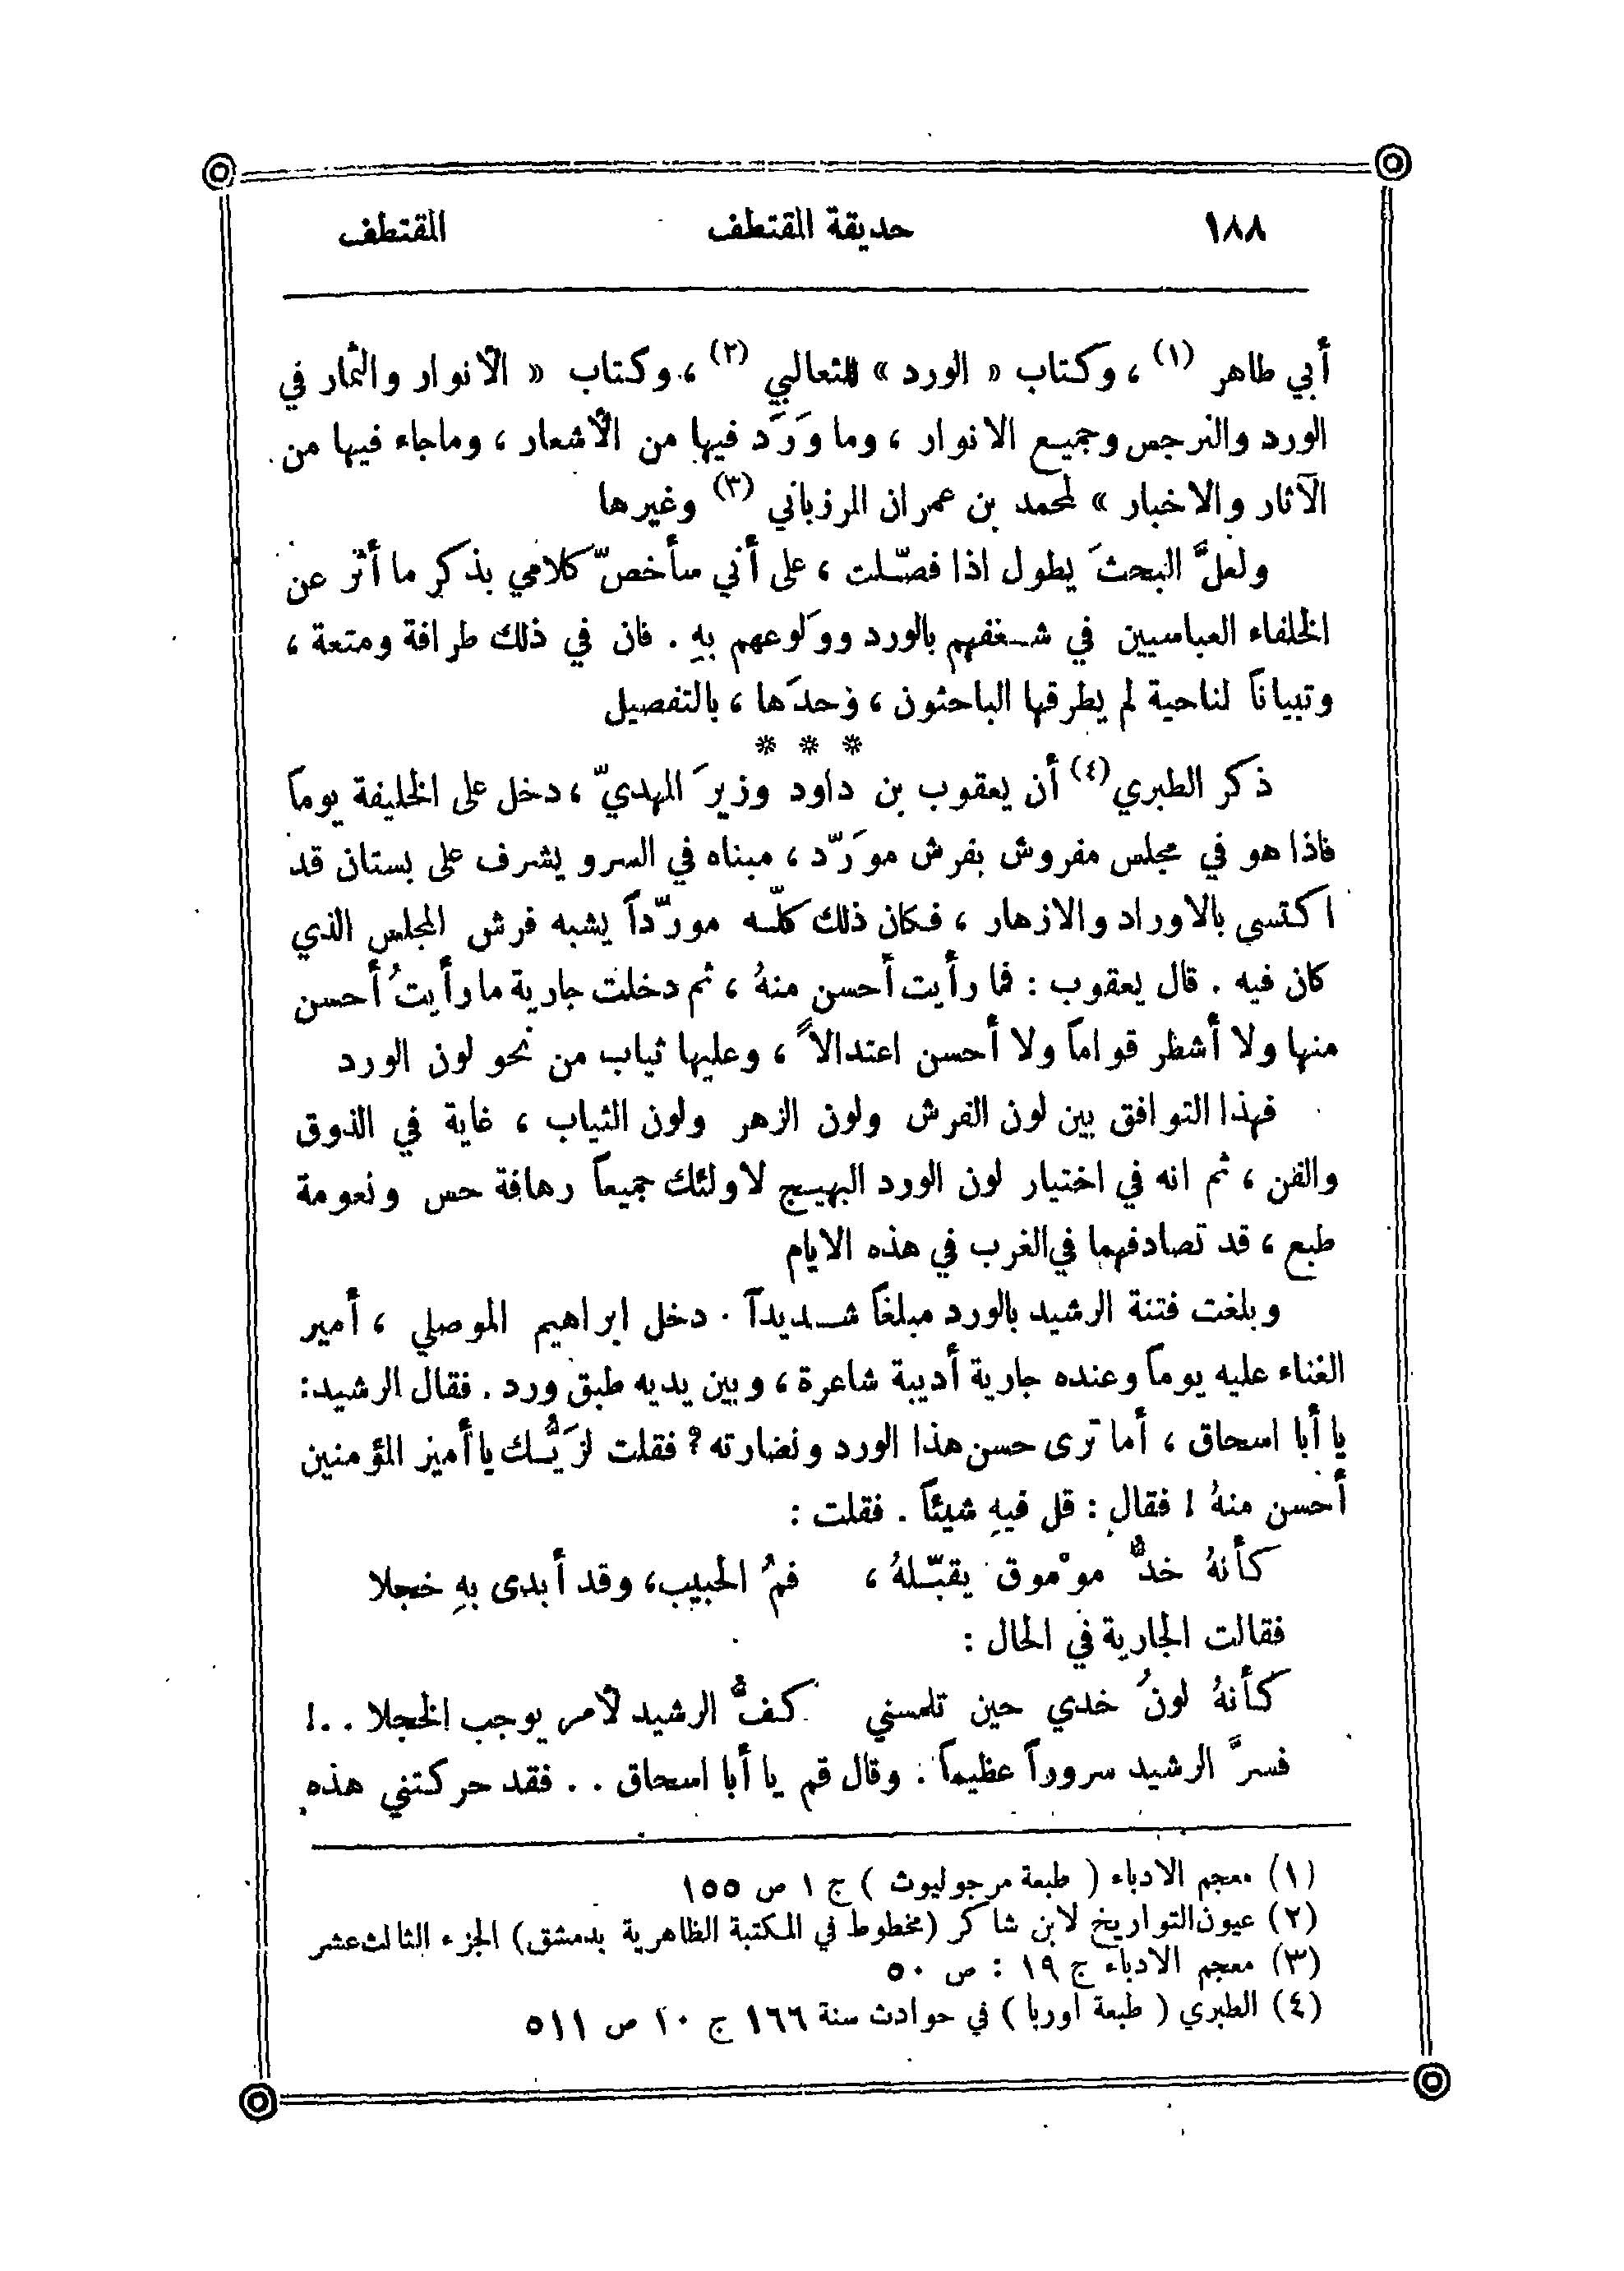 ١٨٨ حديقة المقتطف المقتطف
أبي طاهر (١) ، وكتاب « الورد » للثعالبي (٢) ، وكتاب « الأنوار والثمار في
الورد والنرجس وجميع الانوار ، وما وَرَد فيها من الأشعار ، وماجاء فيها من
الآثار والاخبار » لمحمد بن عمران المرزباني (٣) وغيرها
ولعلَّ البحثَ يطول اذا فصّلت ، على أني سأخصّ كلامي بذكرِ ما أثر عن
الخلفاء العباسيين في شغفهم بالورد ووَلوعهم بهِ . فان في ذلك طرافة ومتعة ،
وتبياناً لناحية لم يطرقها الباحثون ، وَحدَها ، بالتفصيل
* * *
ذكر الطبري (٤) أن يعقوب بن داود وزيرَ المهديّ ، دخل على الخليفة يوماً
فاذا هو في مجلس مفروش بفرش مورَّد ، مبناه في السرو يشرف على بستان قد
اكتسى بالاوراد والازهار ، فكان ذلك كلّه مورّداً يشبه فرش المجلس الذي
كان فيه . قال يعقوب : فما رأيت أحسن منهُ ، ثم دخلت جارية ما رأيتُ أحسن
منها ولا أشطر قواماً ولا أحسن اعتدالاً ، وعليها ثياب من نحو لون الورد
فهذا التوافق بين لون الفرش ولون الزهر ولون الثياب ، غاية في الذوق
والفن ، ثم انه في اختيار لون الورد البهيج لاولئك جميعاً رهافة حس ونعومة
طبع ، قد تصادفهما في الغرب في هذه الايام
وبلغت فتنة الرشيد بالورد مبلغاً شديداً . دخل ابراهيم الموصلي ، أمير
الغناء عليه يوماً وعنده جارية أديبة شاعرة ، وبين يديه طبق ورد . فقال الرشيد :
يا أبا اسحاق ، أما ترى حسن هذا الورد ونضارته ؟ فقلت لزَيُّك يا أمير المؤمنين
أحسن منهُ ! فقال : قل فيهِ شيئاً . فقلت :
كأنهُ خدُّ موْموق يقبّلهُ ، فمُ الحبيب، وقد أبدى بهِ خجلا
فقالت الجارية في الحال :
كأنهُ لونُ خدي حين تلمسني كفُّ الرشيد لأمر يوجب الخجلا . . !
فسرَّ الرشيد سروراً عظيماً . وقال قم يا أبا اسحاق . . فقد حركتني هذه
(١) معجم الادباء ( طبعة مرجوليوث ) ج ١ ص ١٥٥
(٢) عيون التواريخ لابن شاكر (مخطوط في المكتبة الظاهرية بدمشق) الجزء الثالث عشر
(٣) معجم الادباء ج ١٩ : ص ٥٠
(٤) الطبري ( طبعة اوربا ) في حوادث سنة ١٦٦ ج ١٠ ص ٥١١